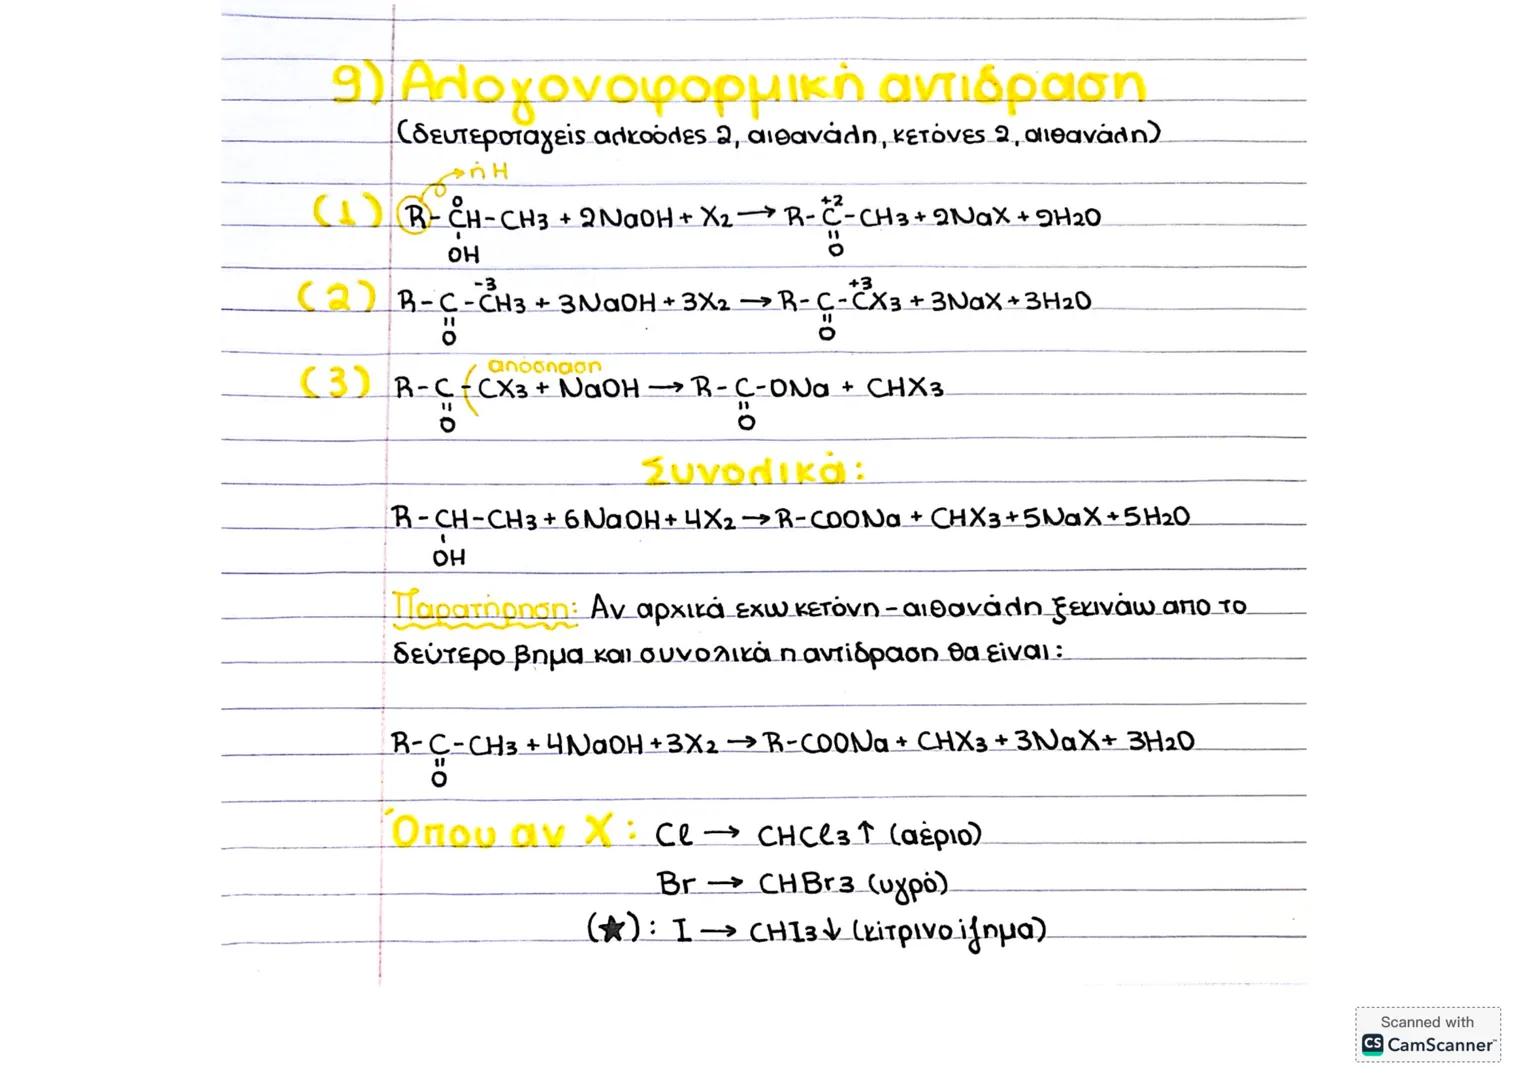 9) Αλογονοφορμική αντίδραση
(δευτεροταγείς αλκοόλες 2, αιθανάλη, κετόνες 2, αιθανάλη)
ή H
(1) R-CH-CH3 + 2NaOH + X2 → R-C-CH3 + 2NaX + 2H2O
0 +2
OH O
(2) R-C-CH3 + 3NaOH + 3X2 → R-C-CX3 + 3NaX + 3H2O
-3 +3
O O
απόσπαση
(3) R-C-CX3 + NaOH → R-C-ONa + CHX3
O O
Συνολικά:
R-CH-CH3 + 6NaOH + 4X2 → R-COONa + CHX3 + 5NaX + 5H2O
OH
Παρατήρηση: Αν αρχικά εχω κετόνη - αιθανάλη ξεκινάω απο το
δεύτερο βημα και συνολικά η αντίδραση θα είναι:
R-C-CH3 + 4NaOH + 3X2 → R-COONa + CHX3 + 3NaX + 3H2O
O
Όπου αν X: Cl → CHCl3↑ (αέριο)
Br → CHBr3 (υγρό)
(★): I → CHI3↓ (κίτρινο ίζημα)
Scanned with
CS CamScanner